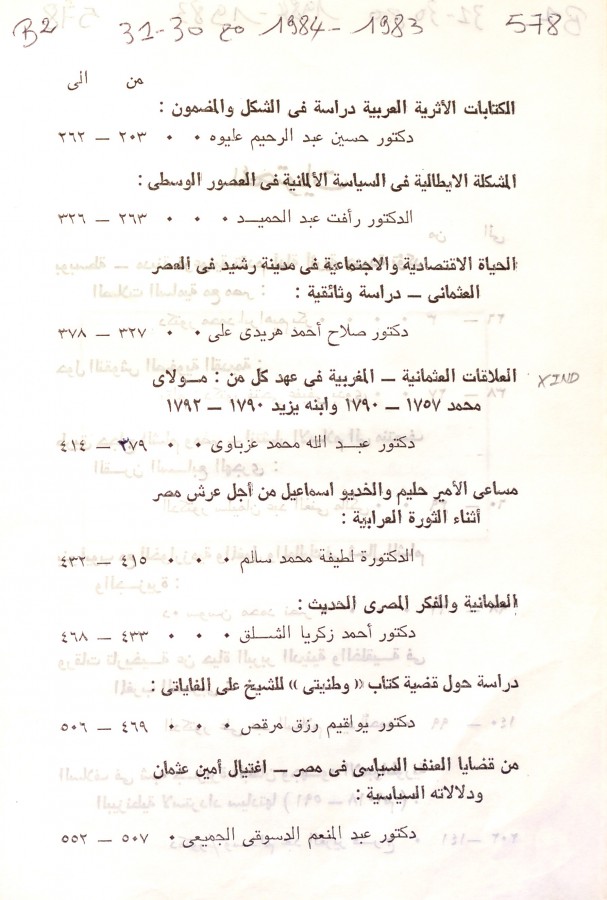 B2 31-30 مج 1984 - 1983 578
من الى
الكتابات الأثرية العربية دراسة فى الشكل والمضمون :
دكتور حسين عبد الرحيم عليوه ٠ ٠ ٢٠٣ — ٢٦٢
المشكلة الايطالية فى السياسة الألمانية فى العصور الوسطى :
الدكتور رأفت عبد الحميـد ٠ ٠ ٠ ٢٦٣ — ٣٢٦
الحياة الاقتصادية والاجتماعية فى مدينة رشيد فى العصر
العثمانى — دراسة وثائقية :
دكتور صلاح أحمد هريدى على ٠ ٠ ٣٢٧ — ٣٧٨
العلاقات العثمانية — المغربية فى عهد كل من : مـولاى XIND
محمد ١٧٥٧ — ١٧٩٠ وابنه يزيد ١٧٩٠ — ١٧٩٢
دكتور عبد الله محمد عزباوى ٠ ٠ ٣٧٩ — ٤١٤
مساعى الأمير حليم والخديو اسماعيل من أجل عرش مصر
أثناء الثورة العرابية :
الدكتورة لطيفة محمد سالم ٠ ٠ ٠ ٤١٥ — ٤٣٢
العلمانية والفكر المصرى الحديث :
دكتور أحمد زكريا الشـلق ٠ ٠ ٠ ٤٣٣ — ٤٦٨
دراسة حول قضية كتاب « وطنيتى » للشيخ على الغاياتى :
دكتور يواقيم رزق مرقص ٠ ٠ ٠ ٤٦٩ — ٥٠٦
من قضايا العنف السياسى فى مصر — اغتيال أمين عثمان
ودلالاته السياسية :
دكتور عبد المنعم الدسوقى الجميعى ٠ ٥٠٧ — ٥٥٢